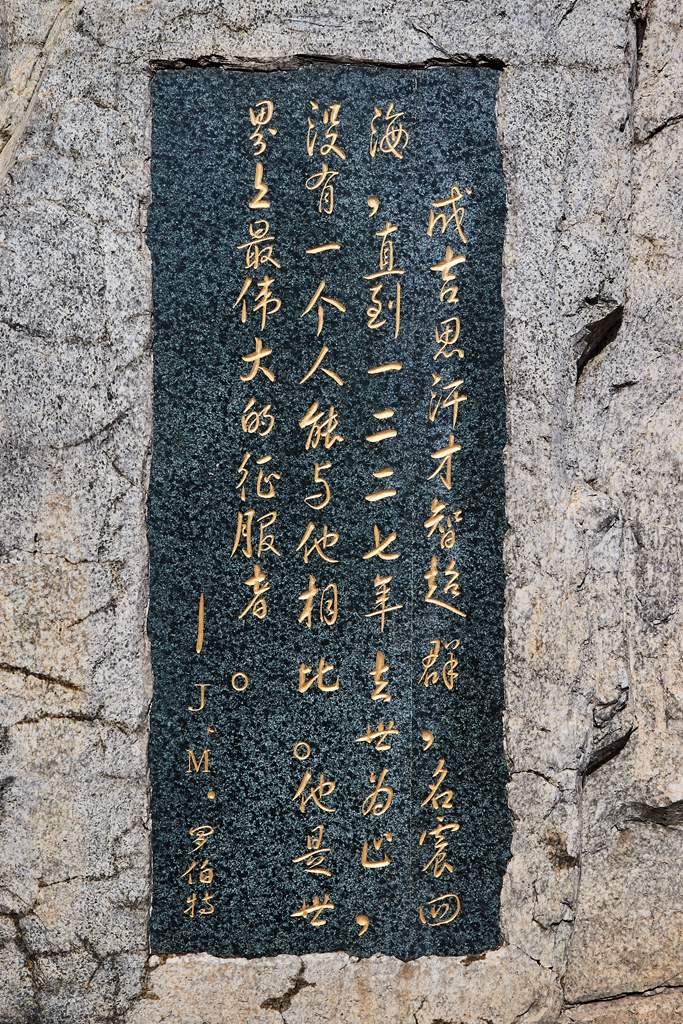 成吉思汗才智超群，名震四
海，直到一二二七年去世为止，
没有一个人能与他相比。他是世
界上最伟大的征服者。
—J.M.罗伯特